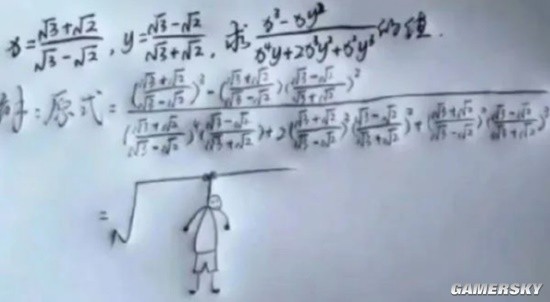 x=\frac{√3+√2}{√3-√2}, y=\frac{√3-√2}{√3+√2}, 求\frac{x³-xy²}{x⁴y+2x³y²+x²y³}的值.
解:原式=\frac{(\frac{√3+√2}{√3-√2})³-(\frac{√3+√2}{√3-√2})(\frac{√3-√2}{√3+√2})²}{(\frac{√3+√2}{√3-√2})⁴(\frac{√3-√2}{√3+√2})+2(\frac{√3+√2}{√3-√2})³(\frac{√3-√2}{√3+√2})²+(\frac{√3+√2}{√3-√2})²(\frac{√3-√2}{√3+√2})³}
=√
GAMERSKY